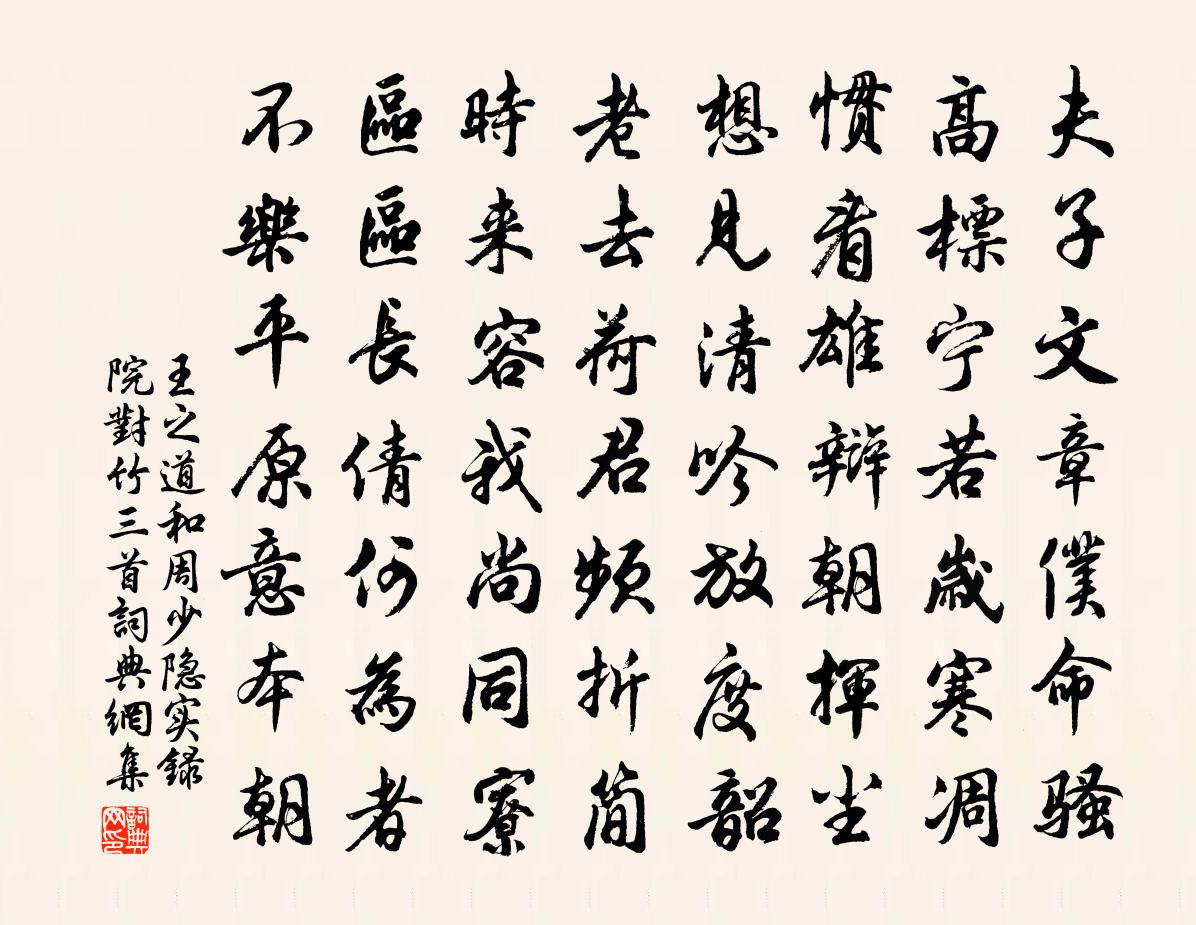 夫子文章僕命騷
高標宁若歲寒凋
慣看雄辯朝揮尘
想見清吟放度韶
老去荷君頻折简
時来容我尚同寮
區區長倩何為者
不樂平原意本朝
王之道和周少隐实錄
院對竹三首詞典網集
詞典网印